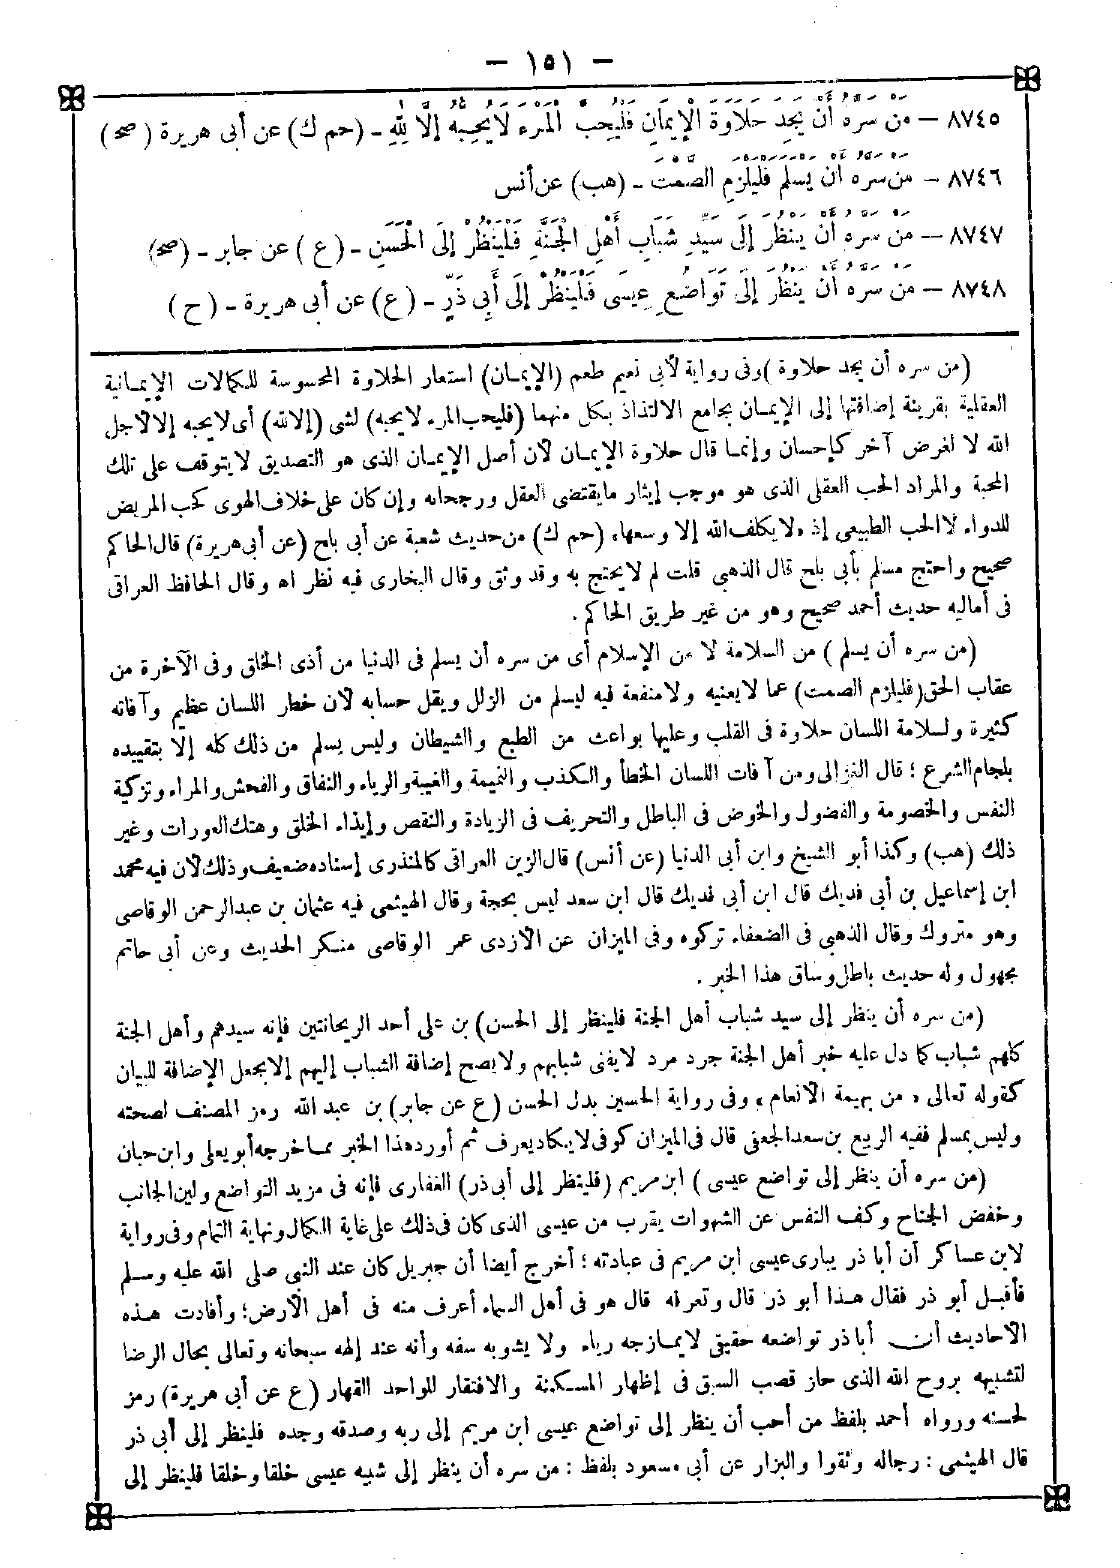 – ١٥١ –
٨٧٤٥ – مَنْ سَرَّهُ أَنْ يَجِدَ حَلَاوَةَ الْإِيمَانِ فَلْيُحِبَّ الْمَرْءَ لَا يُحِبُّهُ إِلَّا لِلّٰهِ – (حم ك) عن أبى هريرة (صح)
٨٧٤٦ – مَنْ سَرَّهُ أَنْ يَسْلَمَ فَلْيَلْزَمِ الصَّمْتَ – (هب) عن أنس
٨٧٤٧ – مَنْ سَرَّهُ أَنْ يَنْظُرَ إِلَى سَيِّدِ شَبَابِ أَهْلِ الْجَنَّةِ فَلْيَنْظُرْ إِلَى الْحَسَنِ – (ع) عن جابر – (صح)
٨٧٤٨ – مَنْ سَرَّهُ أَنْ يَنْظُرَ إِلَى تَوَاضُعِ عِيسَى فَلْيَنْظُرْ إِلَى أَبِي ذَرٍّ – (ع) عن أبى هريرة – (ح)
(من سره أن يجد حلاوة) وفى رواية لأبى نعيم طعم (الإيمان) استعار الحلاوة المحسوسة للكمالات الإيمانية
العقلية بقرينة إضافتها إلى الإيمان بجامع الالتذاذ بكل منهما (فليحب المرء لا يحبه) لشى (إلا لله) أى لا يحبه إلا لأجل
الله لا لغرض آخر كإحسان وإنما قال حلاوة الإيمان لأن أصل الإيمان الذى هو التصديق لا يتوقف على تلك
المحبة والمراد الحب العقلى الذى هو موجب إيثار ما يقتضى العقل ورجحانه وإن كان على خلاف الهوى كحب المريض
للدواء لا الحب الطبيعى إذ «لا يكلف الله إلا وسعها» (حم ك) من حديث شعبة عن أبى بلج (عن أبى هريرة) قال الحاكم
صحيح واحتج مسلم بأبى بلج قال الذهبى قلت لم لا يحتج به وقد وثق وقال البخارى فيه نظر اه وقال الحافظ العراقى
فى أماليه حديث أحمد صحيح وهو من غير طريق الحاكم .
(من سره أن يسلم) من السلامة لا من الإسلام أى من سره أن يسلم فى الدنيا من أذى الخلق وفى الآخرة من
عقاب الحق (فليلزم الصمت) عما لا يعنيه ولا منفعة فيه ليسلم من الزلل ويقل حسابه لأن خطار اللسان عظيم وآفاته
كثيرة ولسلامة اللسان حلاوة فى القلب وعليها بواعث من الطبع والشيطان وليس يسلم من ذلك كله إلا بتقييده
بلجام الشرع ؛ قال الغزالى ومن آفات اللسان الخطأ والكذب والنميمة والغيبة والرياء والنفاق والفحش والمراء وتزكية
النفس والخصومة والفضول والخوض فى الباطل والتحريف فى الزيادة والنقص وإيذاء الخلق وهتك العورات وغير
ذلك (هب) وكذا أبو الشيخ وابن أبى الدنيا (عن أنس) قال الزين العراقى كالمنذرى إسناده ضعيف وذلك لأن فيه محمد
ابن إسماعيل بن أبى فديك قال ابن أبى فديك قال ابن سعد ليس بحجة وقال الهيثمى فيه عثمان بن عبد الرحمن الوقاصى
وهو متروك وقال الذهبى فى الضعفاء تركوه وفى الميزان عن الأزدى عمر الوقاصى منكر الحديث وعن أبى حاتم
مجهول وله حديث باطل وساق هذا الخبر .
(من سره أن ينظر إلى سيد شباب أهل الجنة فلينظر إلى الحسن) بن على أحد الريحانتين فإنه سيدهم وأهل الجنة
كلهم شباب كما دل عليه خبر أهل الجنة جرد مرد لا يفنى شبابهم ولا يصح إضافة الشباب إليهم إلا بجعل الإضافة للبيان
كقوله تعالى «من بهيمة الأنعام» وفى رواية الحسين بدل الحسن (ع عن جابر) بن عبد الله رمز المصنف لصحته
وليس بمسلم ففيه الربيع بن سعد الجعفى قال فى الميزان كوفى لا يكاد يعرف ثم أورد هذا الخبر مما خرجه أبو يعلى وابن حبان
(من سره أن ينظر إلى تواضع عيسى) ابن مريم (فلينظر إلى أبى ذر) الغفارى فإنه فى مزيد التواضع ولين الجانب
وخفض الجناح وكف النفس عن الشهوات يقرب من عيسى الذى كان فى ذلك على غاية الكمال ونهاية التمام وفى رواية
لابن عساكر أن أبا ذر يبارى عيسى ابن مريم فى عبادته ؛ أخرج أيضا أن جبريل كان عند النبى صلى الله عليه وسلم
فأقبل أبو ذر فقال هذا أبو ذر قال وتعرفه قال هو فى أهل السماء أعرف منه فى أهل الأرض؛ وأفادت هذه
الأحاديث أن أبا ذر تواضعه حقيقى لا يمازجه رياء ولا يشوبه سفه وأنه عند إلهه سبحانه وتعالى بحال الرضا
لتشبيهه بروح الله الذى حاز قصب السبق فى إظهار المسكنة والافتقار للواحد القهار (ع عن أبى هريرة) رمز
لحسنه ورواه أحمد بلفظ من أحب أن ينظر إلى تواضع عيسى ابن مريم إلى ربه وصدقه وجده فلينظر إلى أبى ذر
قال الهيثمى : رجاله وثقوا والبزار عن أبى مسعود بلفظ : من سره أن ينظر إلى شبيه عيسى خلقا وخلقا فلينظر إلى